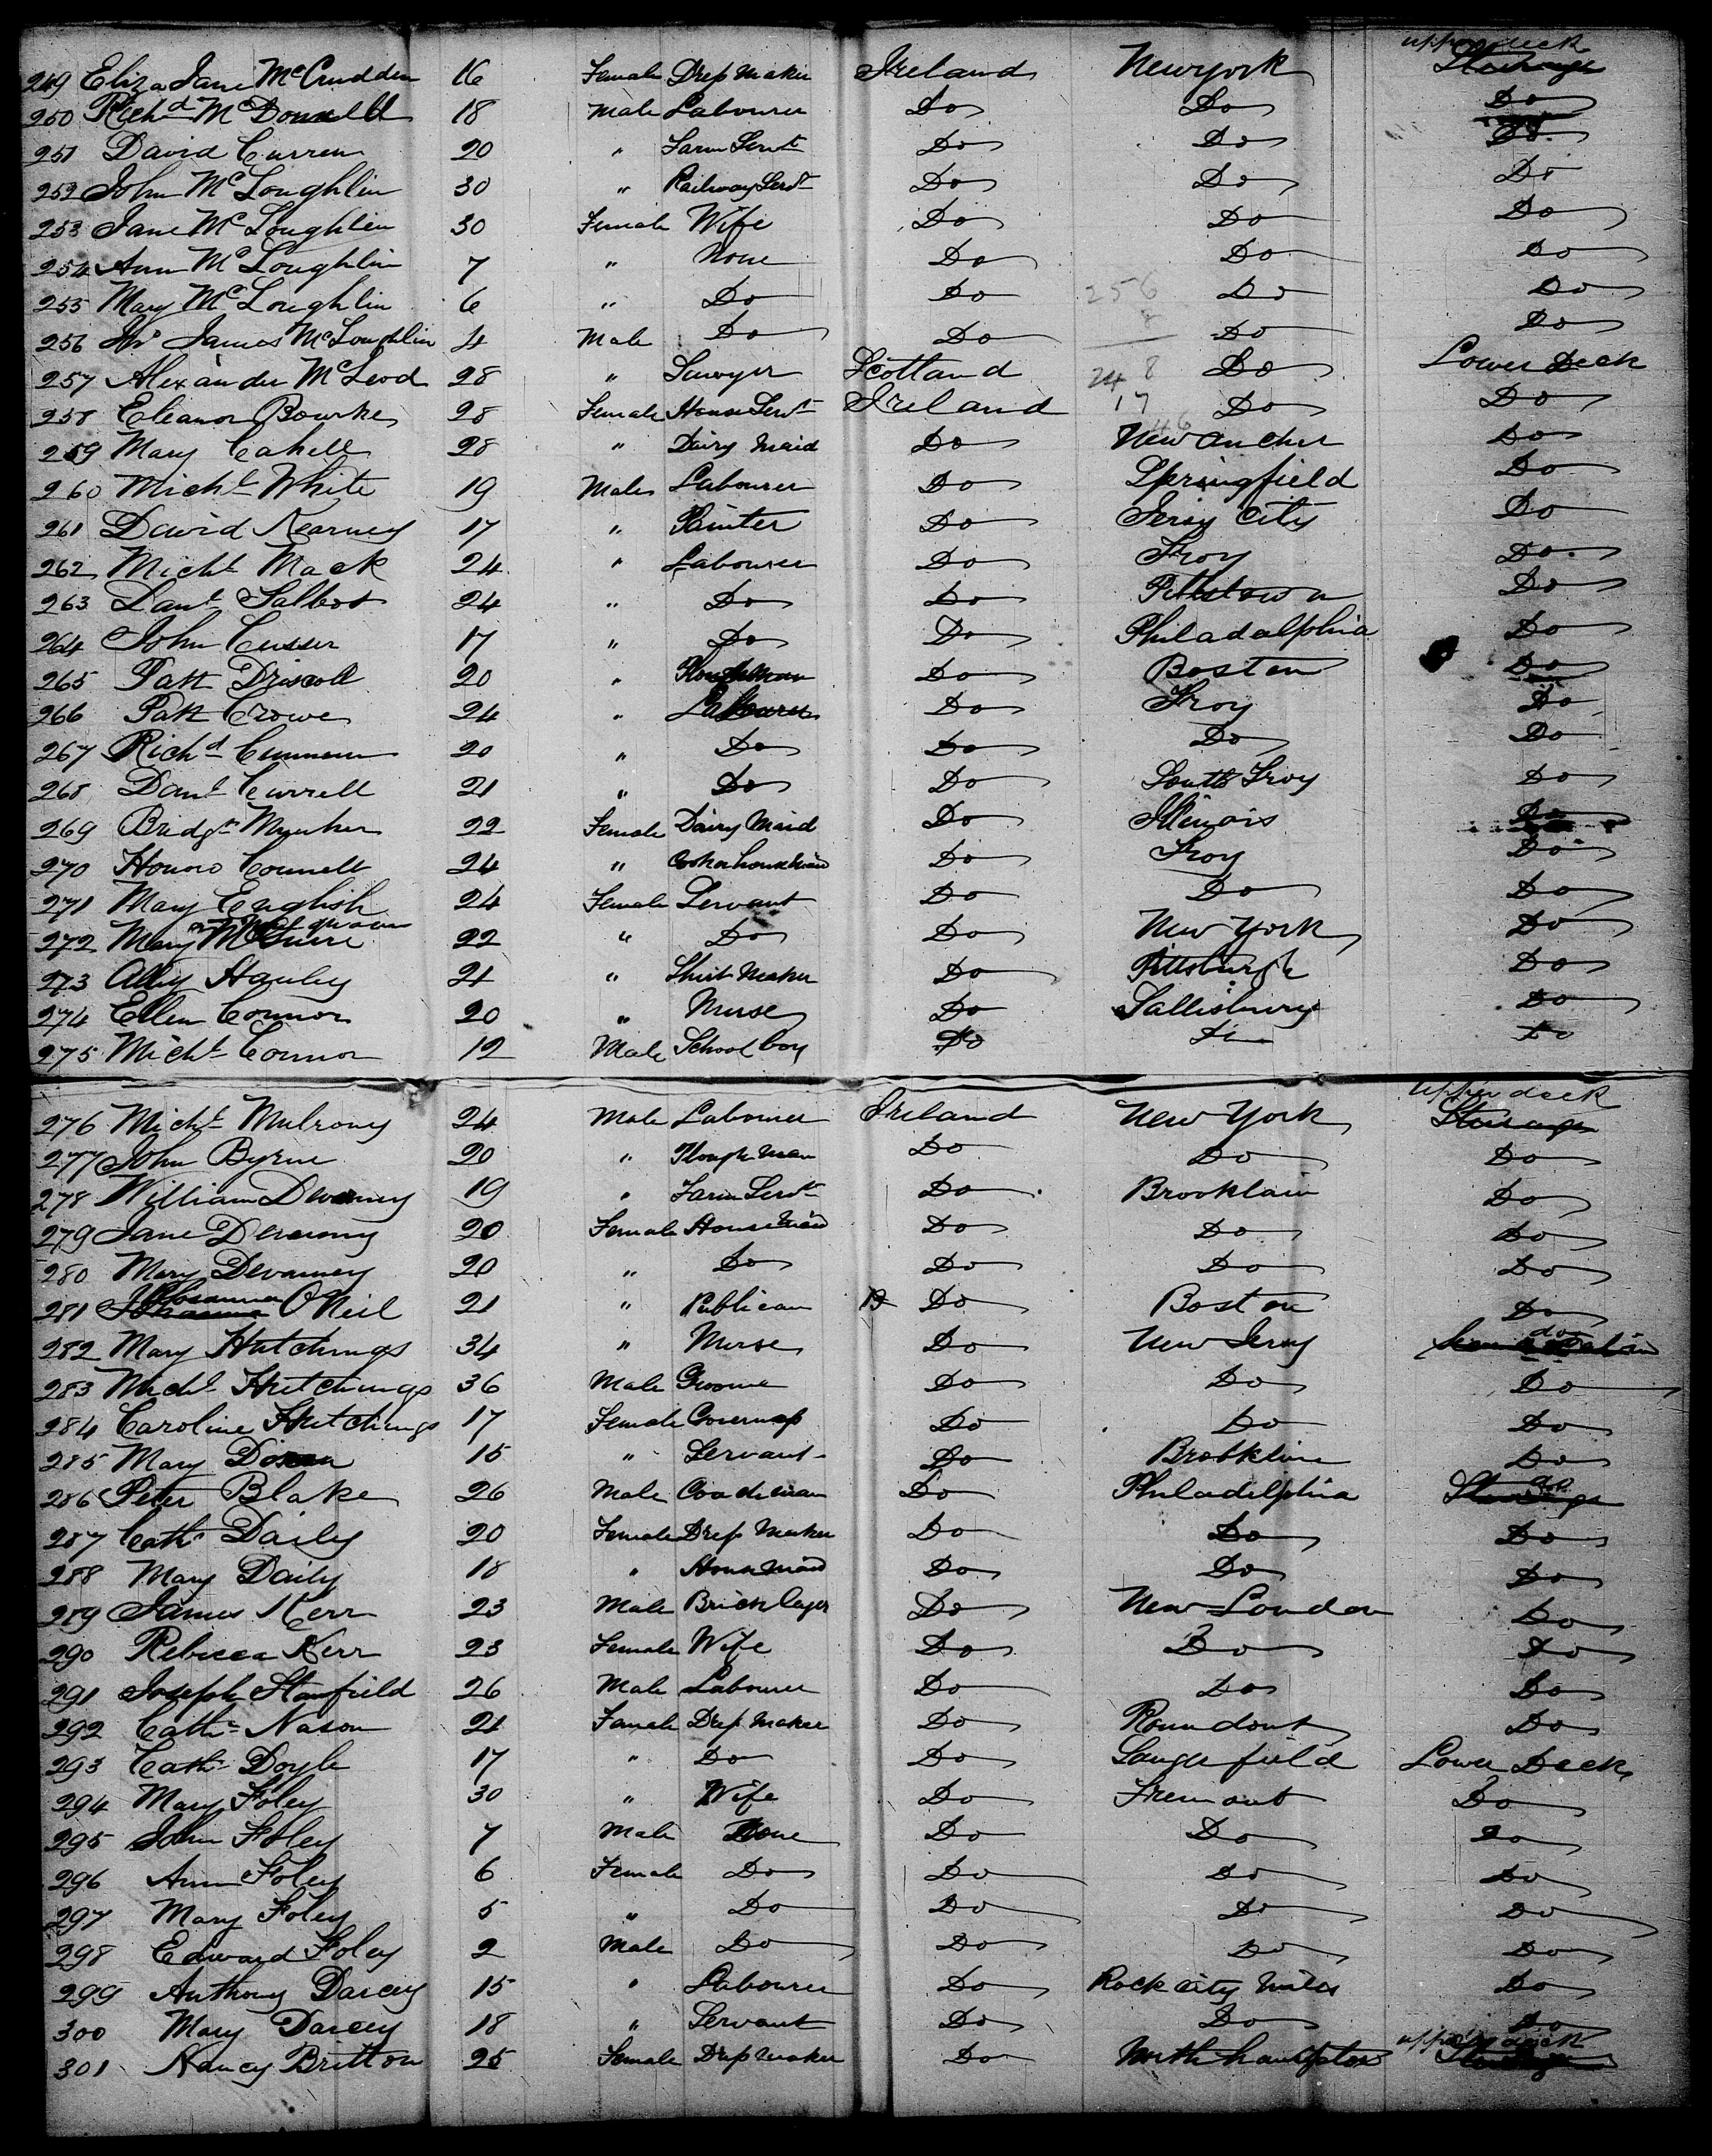 upper deck
249 Eliza Jane McCrudden 16 Female Dress Maker Ireland Newyork Steerage
250 Richd McDonnell 18 Male Labourer Do Do Do
251 David Curren 20 " Farm Servt Do Do Do
252 John McLoughlin 30 " Railway Servt Do Do Do
253 Jane McLoughlin 30 Female Wife Do Do Do
254 Ann McLoughlin 7 " None Do Do Do
255 Mary McLoughlin 6 " Do Do 256 Do Do
256 James McLoughlin 4 Male Do Do 8 Do Do
257 Alexander McLeod 28 " Sawyer Scotland 248 Do Lower Deck
258 Eleanor Bourke 28 Female House Servt Ireland 17 Do Do
259 Mary Cahill 28 " Dairy Maid Do 46 New Do
260 Michl White 19 Male Labourer Do Springfield Do
261 David Kearney 17 " Painter Do Jersy City Do
262 Michl Mack 24 " Labourer Do Troy Do
263 Danl 24 " Do Do Pittstown Do
264 John Cusser 17 " Do Do Philadalphia Do
265 Patt Driscoll 20 " Ploughman Do Boston Do
266 Patt Crowe 24 " Labourer Do Troy Do
267 Richd 20 " Do Do Do Do
268 Danl Currell 21 " Do Do South Troy Do
269 Bridgt 22 Female Dairy Maid Do Illinois Do
270 Honoro Connell 24 " Do Troy Do
271 Mary English 24 Female Servant Do Do Do
272 Mary McGuire 22 " Do Do New York Do
273 Ally Hanley 21 " Shirt Maker Do Pittsburgh Do
274 Ellen Connor 20 " Nurse Do Sallisbury Do
275 Michl Connor 12 Male School boy Do Do Do
upper deck
276 Michl Mulrony 24 Male Labourer Ireland New York Steerage
277 John Byrne 20 " Plough man Do Do Do
278 William Devaney 19 " Farm Servt Do Brooklain Do
279 Jane Devaney 20 Female House Maid Do Do Do
280 Mary Devanney 20 " Do Do Do Do
281 Johanna O'Neil 21 " Publican Do Boston Do
282 Mary Hutchings 34 " Nurse Do New Jersy do
283 Michl Hutchings 36 Male Groome Do Do Do
284 Caroline Hutchings 17 Female Governess Do Do Do
285 Mary Doran 15 " Servant Do Brookline Do
286 Peter Blake 26 Male Coachman Do Philadelphia Steerage do
287 Cathe Daily 20 Female Dress Maker Do Do Do
288 Mary Daily 18 " House maid Do Do Do
289 James Kerr 23 Male Bricklayer Do New London Do
290 Rebecca Kerr 23 Female Wife Do Do Do
291 Joseph Stanfield 26 Male Labourer Do Do Do
292 Cathe Nason 21 Female Dress Maker Do Roundout Do
293 Cathe Doyle 17 " Do Do Sangerfield Lower Deck
294 Mary Foley 30 " Wife Do Fremont Do
295 John Foley 7 Male None Do Do Do
296 Ann Foley 6 Female Do Do Do Do
297 Mary Foley 5 " Do Do Do Do
298 Edward Foley 2 Male Do Do Do Do
299 Anthony Darcey 15 " Labourer Do Rock City Mills Do
300 Mary Darcey 18 " Servant Do Do Do
upper deck
301 Nancy Britton 25 Female Dress Maker Do Northhampton Steerage